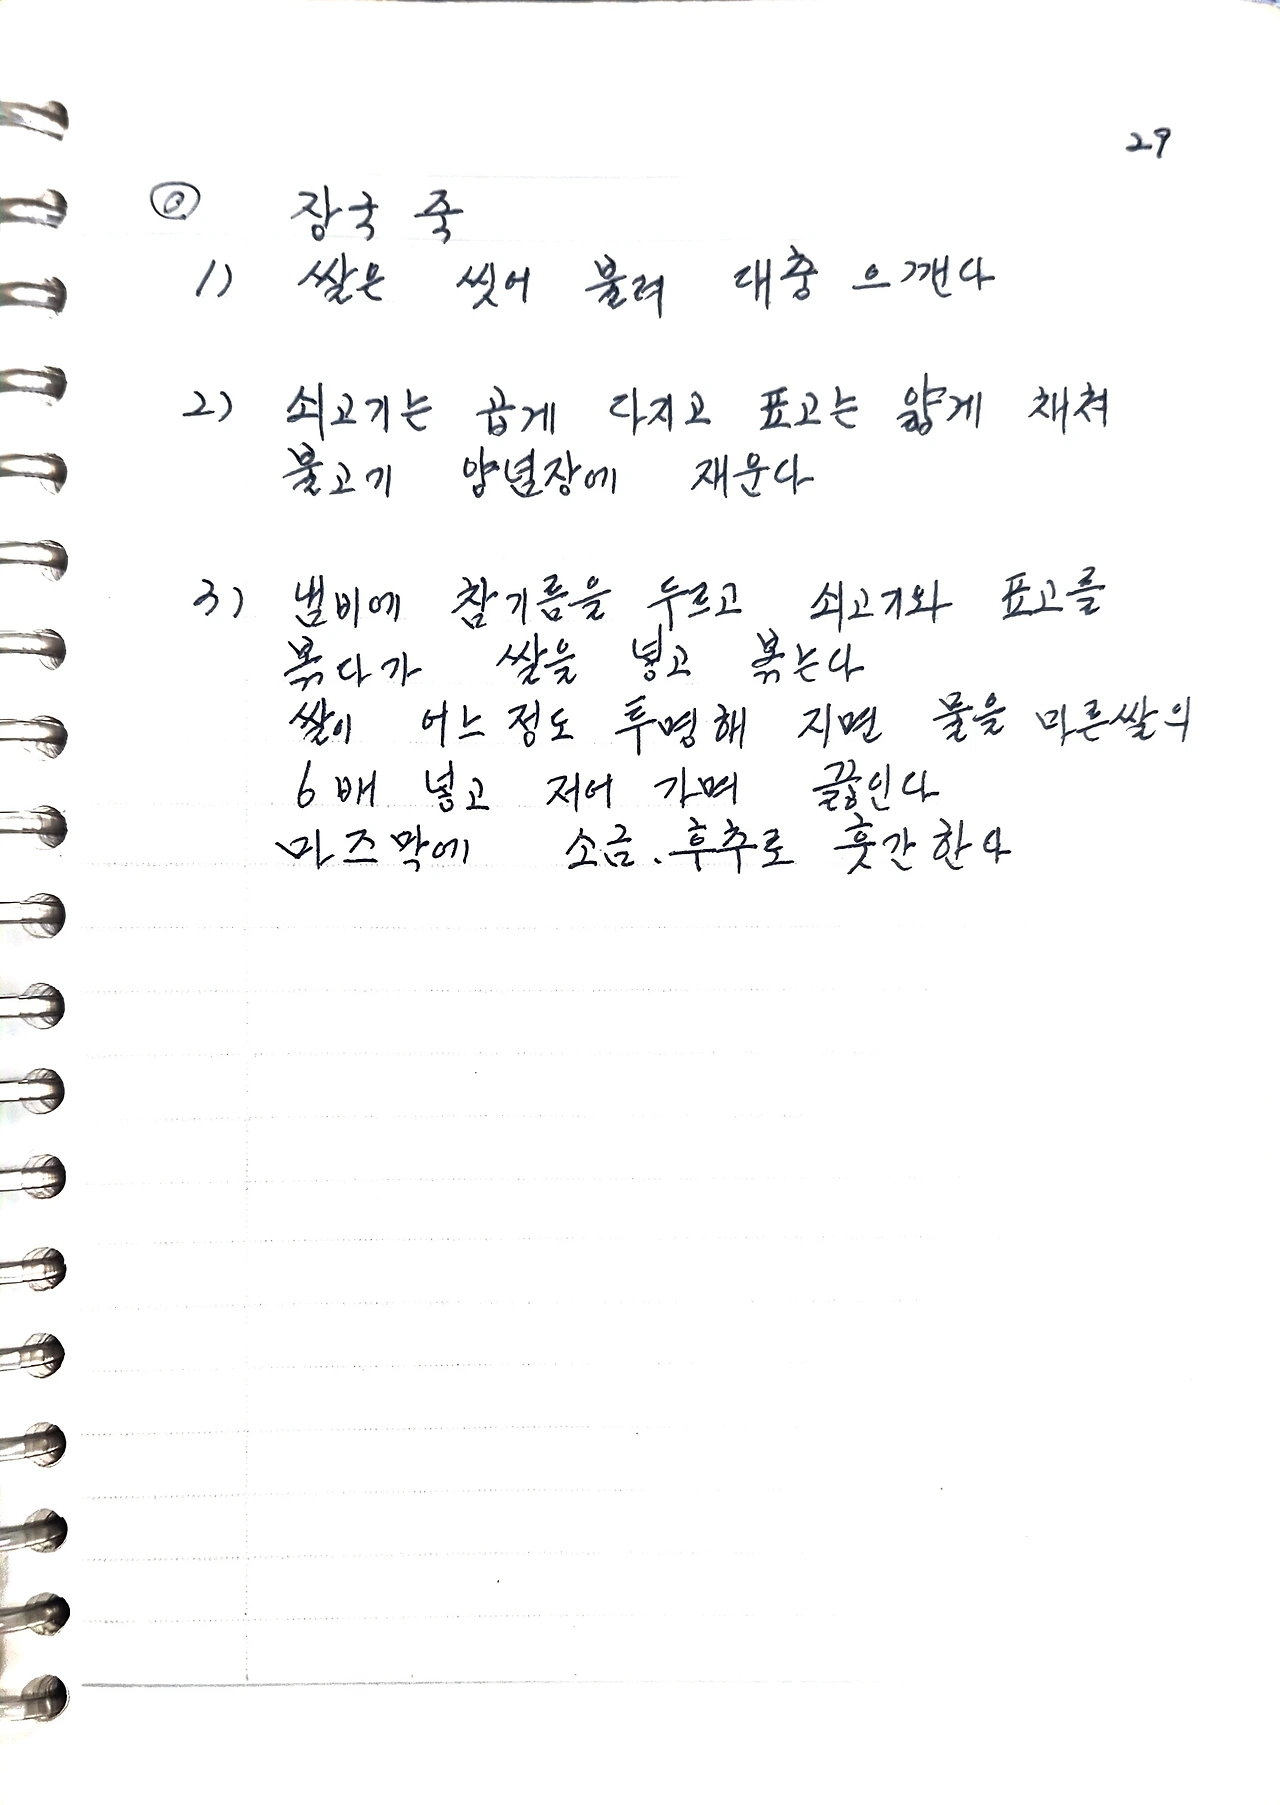 29
◎ 장국 죽
1) 쌀은 씻어 불려 대충 으깬다
2) 쇠고기는 곱게 다지고 표고는 얇게 채쳐
불고기 양념장에 재운다
3) 냄비에 참기름을 두르고 쇠고기와 표고를
볶다가 쌀을 넣고 볶는다
쌀이 어느 정도 투명해 지면 물을 마른쌀의
6배 넣고 저어 가며 끓인다
마즈막에 소금.후추로 훗간한다